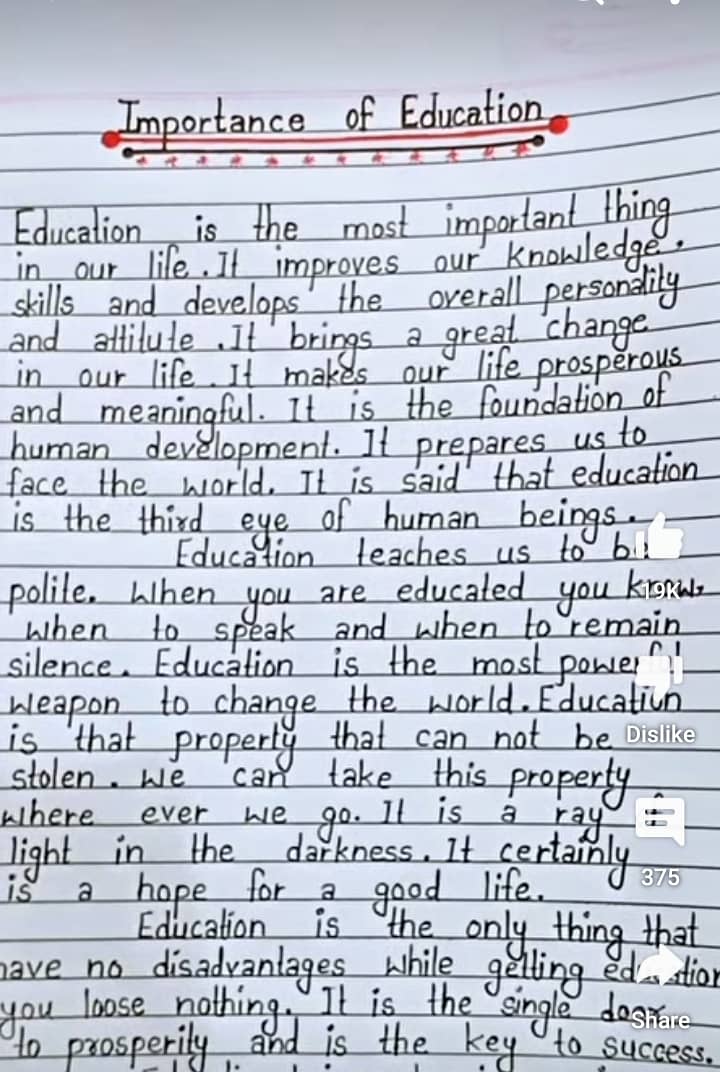 Importance of Education
Education is the most important thing
in our life. It improves our knowledge,
skills and develops the overall personality
and attitute. It brings a great change
in our life. It makes our life prosperous
and meaningful. It is the foundation of
human development. It prepares us to
face the world. It is said that education
is the third eye of human beings.
Education teaches us to be
polite. When you are educated you know
19K
when to speak and when to remain
silence. Education is the most powerful
weapon to change the world. Education
is that property that can not be
Dislike
stolen. We can take this property
where ever we go. It is a ray
light in the darkness. It certainly
375
is a hope for a good life.
Education is the only thing that
have no disadvantages while getting education
you loose nothing. It is the single door
Share
to prosperity and is the key to success.